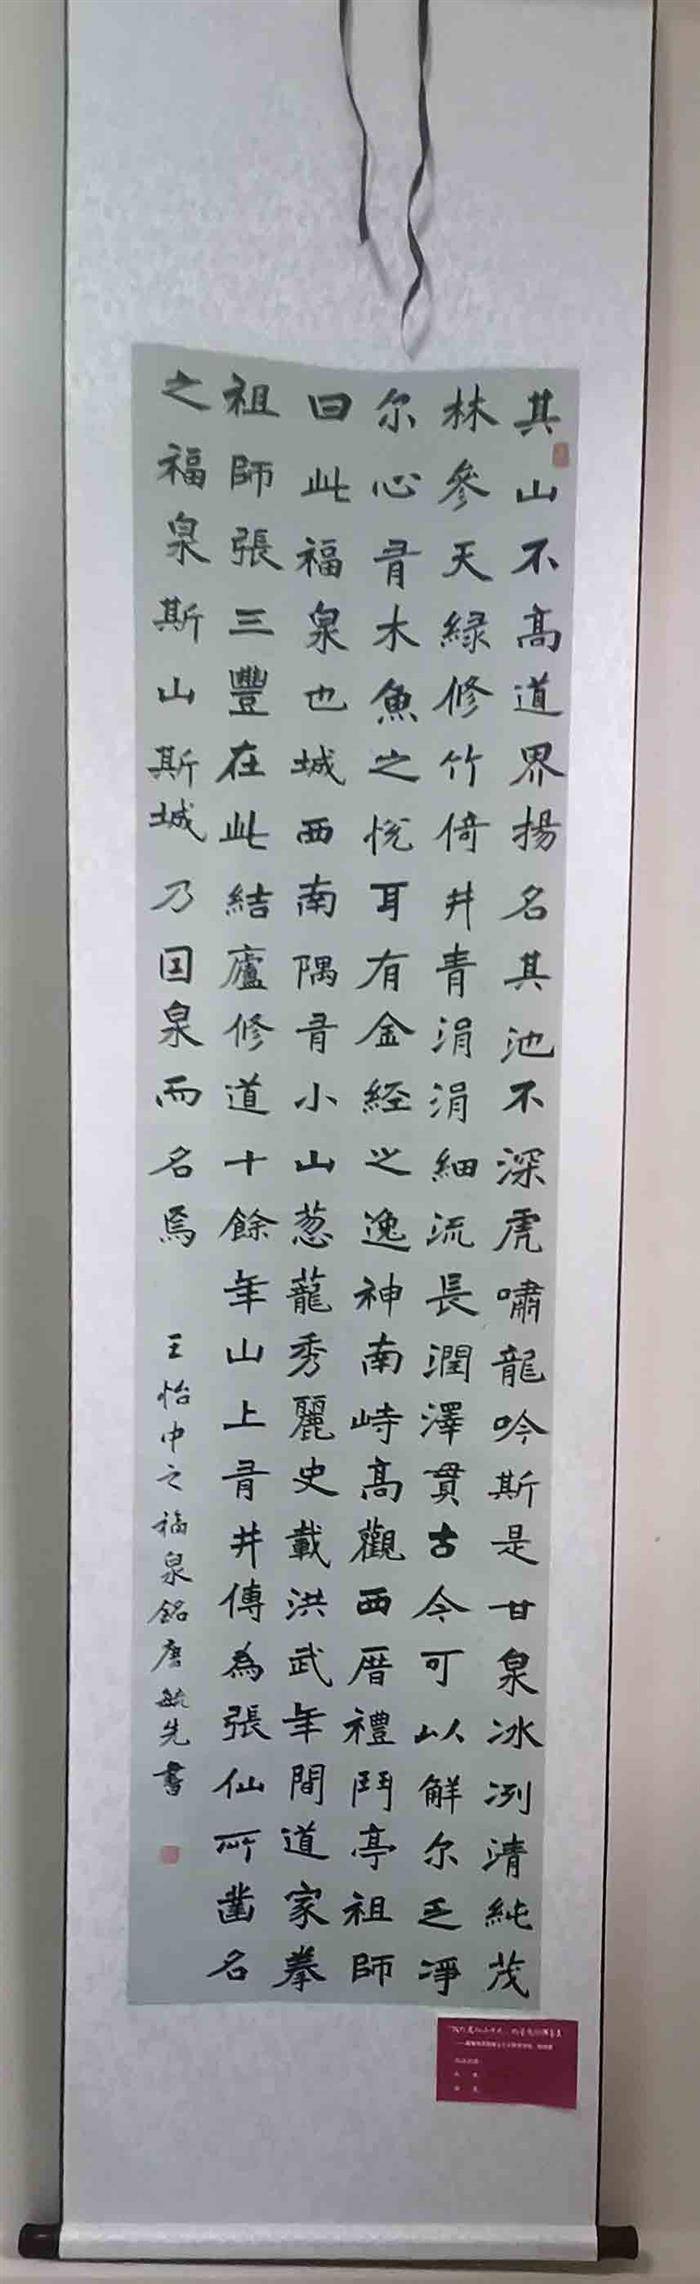 其山不高道界揚名其池不深虎嘯龍吟斯是甘泉冰冽清純茂
林參天緑修竹倚井青涓涓細流長潤澤貫古今可以解尔乏凈
尔心有木魚之悦耳有金經之逸神南峙高觀西厝禮鬥亭祖師
曰此福泉也城西南隅有小山葱蘢秀麗史載洪武年間道家拳
祖師張三豐在此結廬修道十餘年山上有井傳為張仙所凿名
之福泉斯山斯城乃因泉而名焉
王怡中之福泉銘唐毓先書